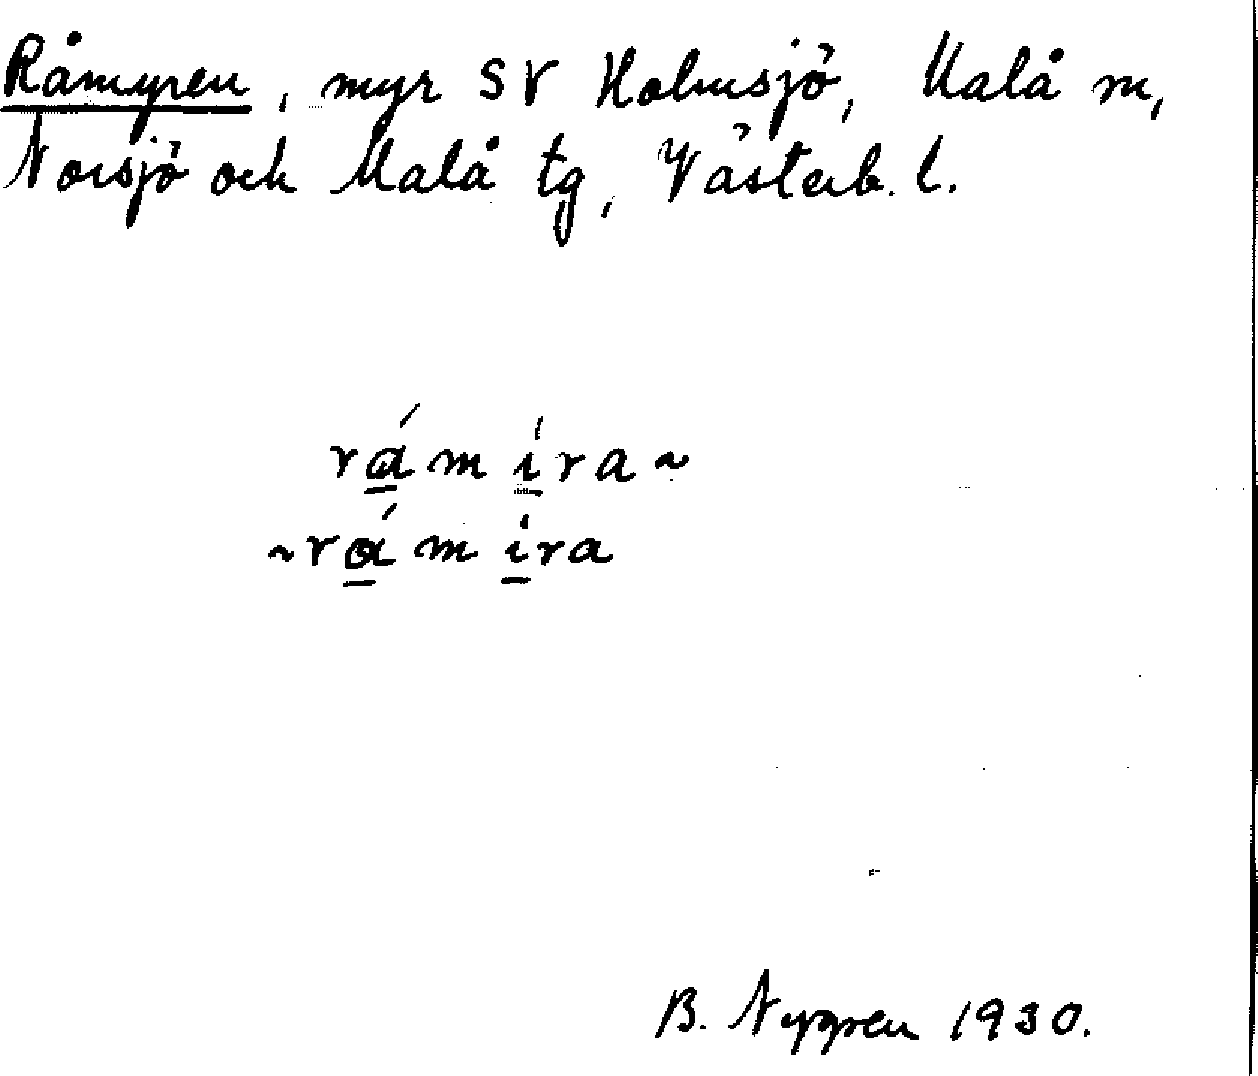 Råmyren, myr SV Holmsjö, Malå m,
Norsjö och Malå tg, Västerb. l.
rá̱m í̱ra ~
~ rá̱m i̱ra
B. Nygren 1930.